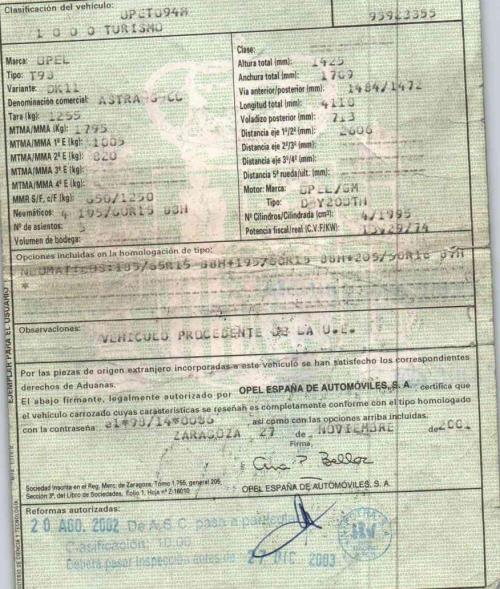 Clasificación del vehículo:
1 0 0 0 TURISMO
Marca: OPEL
Tipo: T98
Variante: DK11
Denominación comercial: ASTRA-G-CC
Tara (kg): 1255
MTMA/MMA (Kg): 1795
MTMA/MMA 1º E (kg):
MTMA/MMA 2º E (kg): 820
MTMA/MMA 3º E (kg):
MTMA/MMA 4º E (kg):
MMR S/F, c/F (kg): 650/1250
Neumáticos: 4 195/60R15 88H
Nº de asientos: 5
Volumen de bodega:
Clase:
Altura total (mm): 1425
Anchura total (mm): 1709
Vía anterior/posterior (mm): 1484/1472
Longitud total (mm): 4110
Voladizo posterior (mm): 713
Distancia eje 1º/2º (mm): 2606
Distancia eje 2º/3º (mm):
Distancia eje 3º/4º (mm):
Distancia 5ª rueda/últ. (mm):
Motor: Marca: OPEL/GM
Tipo:
Nº Cilindros/Cilindrada (cm³): 4/1995
Potencia fiscal/real (C.V.F/KW):
Opciones incluidas en la homologación de tipo:
NEUMATICOS:185/65R15 88H+195/60R15 88H+205/50R16
*
Observaciones:
VEHICULO PROCEDENTE DE LA U.E.
Por las piezas de origen extranjero incorporadas a este vehículo se han satisfecho los correspondientes
derechos de Aduanas.
El abajo firmante, legalmente autorizado por OPEL ESPAÑA DE AUTOMÓVILES, S. A., certifica que
el vehículo carrozado cuyas características se reseñan es completamente conforme con el tipo homologado
con la contraseña e1*98/14*0086, así como con las opciones arriba incluidas.
ZARAGOZA, 27 de NOVIEMBRE de 2001
Firma,
Sociedad inscrita en el Reg. Merc. de Zaragoza, Tomo 1.755, general 205,
Sección 3ª, del Libro de Sociedades, Folio 1, Hoja nº Z-16010
OPEL ESPAÑA DE AUTOMÓVILES, S. A.
Reformas autorizadas:
20 AGO. 2002 De A.S.C. pasa a particular
Clasificación: 10.00
Deberá pasar Inspección antes de 27 DIC 2003
EJEMPLAR PARA EL USUARIO